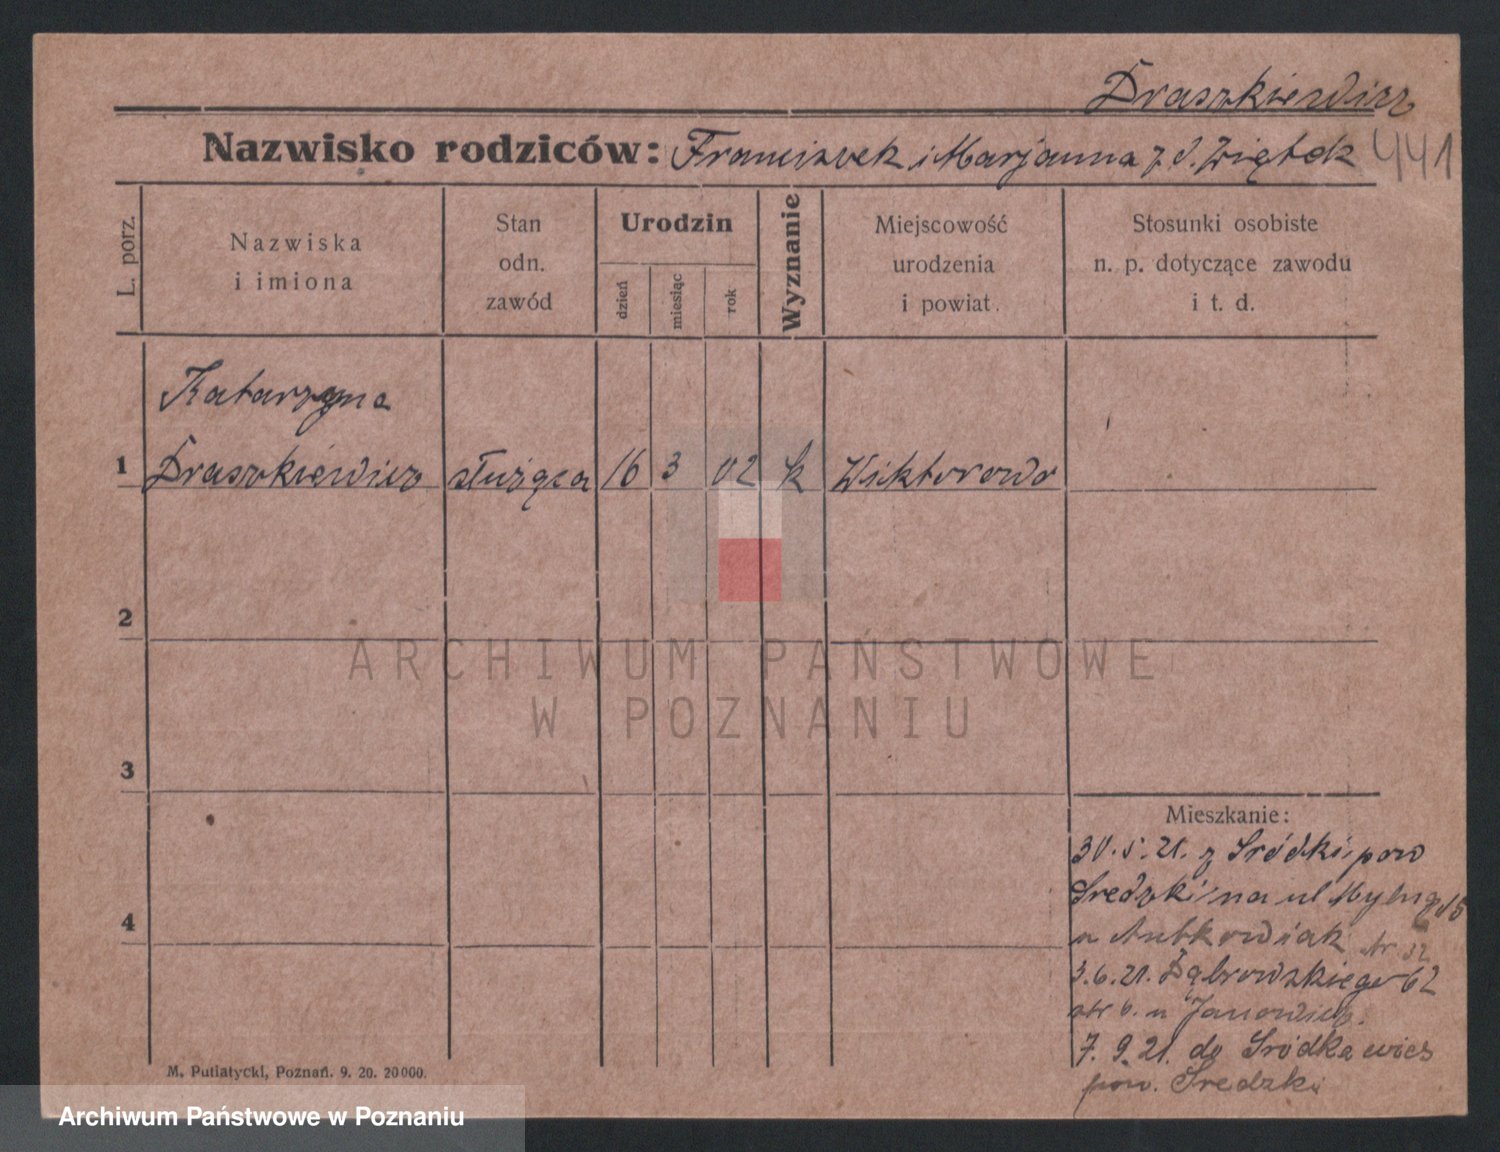 Draszkiewicz
Nazwisko rodziców: Franciszek i Marjanna z d. Ziętek 441
L. porz.
Nazwiska
i imiona
Stan
odn.
zawód
Urodzin
dzień
miesiąc
rok
Wyznanie
Miejscowość
urodzenia
i powiat.
Stosunki osobiste
n. p. dotyczące zawodu
i t. d.
Katarzyna
1 Draszkiewicz służąca 16 3 02 k Wiktorowo
2
3
4
ARCHIWUM PAŃSTWOWE
W POZNANIU
Mieszkanie:
30.5.21. z Sródki, pow
Sredzki na ul
u Antkowiak Nr. 32
3.6.21. Dąbrowskiego 62
u Janowicz.
7.9.21. do Sródka wies
pow. Sredzki
M. Putiatycki, Poznań. 9. 20. 20000.
Archiwum Państwowe w Poznaniu